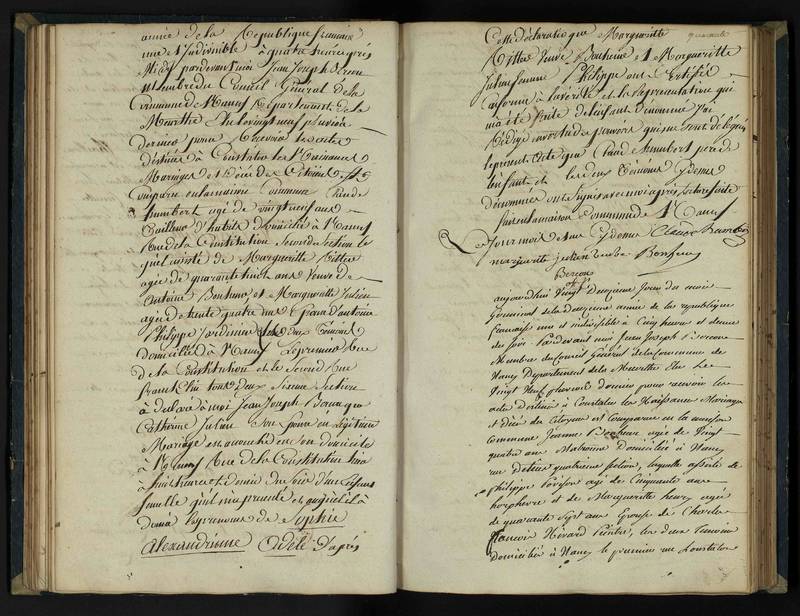 année de la République francaise
une et Indivisible à quatre heures après
Midy pardevant moi Jean Joseph
Membre du Conseil Général de la
Commune de Nancy Département de la
Meurthe Elu le vingt neuf pluviose
dernier pour Recevoir les actes
destinés à Constater les Naissances
Mariages et Décès des Citoyens Est
comparu en la maison commune Claude
humbert agé de vingt neuf ans
Tailleur d'habits domicilié à Nancy
Rue de la Constitution Seconde Section le
quel assisté de Margueritte
agée de quarante huit ans veuve de
antoine et Margueritte Julien
agée de trente quatre ans Epouse d'antoine
Philippe Jardinier les deux Témoins
domiciliés à Nancy La première Rue
de la Constitution et la Seconde Rue
franklin tous deux Section
à déclaré à moi Jean Joseph que
Catherine Julien Son Epouse en légitime
Mariage est accouchée en Son domicile
à Nancy Rue de la Constitution hier
à huit heures et demie du Soir d'un Enfant
femelle qu'il m'a présenté et auquel il à
donné les prenoms de Sophie
alexandrinne Adèle D'après
quarante
Cette déclaration que Margueritte
veuve et Margueritte
Julien femme Philippe ont Certifié
conforme à la vérité et la Représentation qui
m'a été faite de l'enfant dénommé J'ai
Rédigé en vertu des pouvoirs qui me sont délégués
le présent acte que Claude humbert père de
l'enfant et les deux Témoins
dénommés ont Signé avec moi après lecture faite
fait en la maison Commune de Nancy
Les jour mois et an Claude humbert
margueritte julien
aujourd'huy Vingt Deuxieme Jour du mois
Germinal de la Deuxieme année de la république
francaise une et indivisible à Cinq heures et demie
du Soir Pardevant moi Jean Joseph
Membre du Conseil Général de la Commune de
Nancy Département de la Meurthe Elu Le
Vingt Neuf pluviose dernier pour recevoir les
acte destiné à Constater les Naissances Mariages
et Décès des Citoyens est Comparue en la maison
Commune Jeanne agée de Vingt
quatre ans Domiciliée à Nancy
rue quatrieme Section, laquelle assistée de
Philippe agé de Cinquante ans
horphevre et de Margueritte henry agée
de quarante Sept ans Epouse de Charles
francois Hérard Peintre, les deux Temoins
domiciliés à Nancy le premier rue